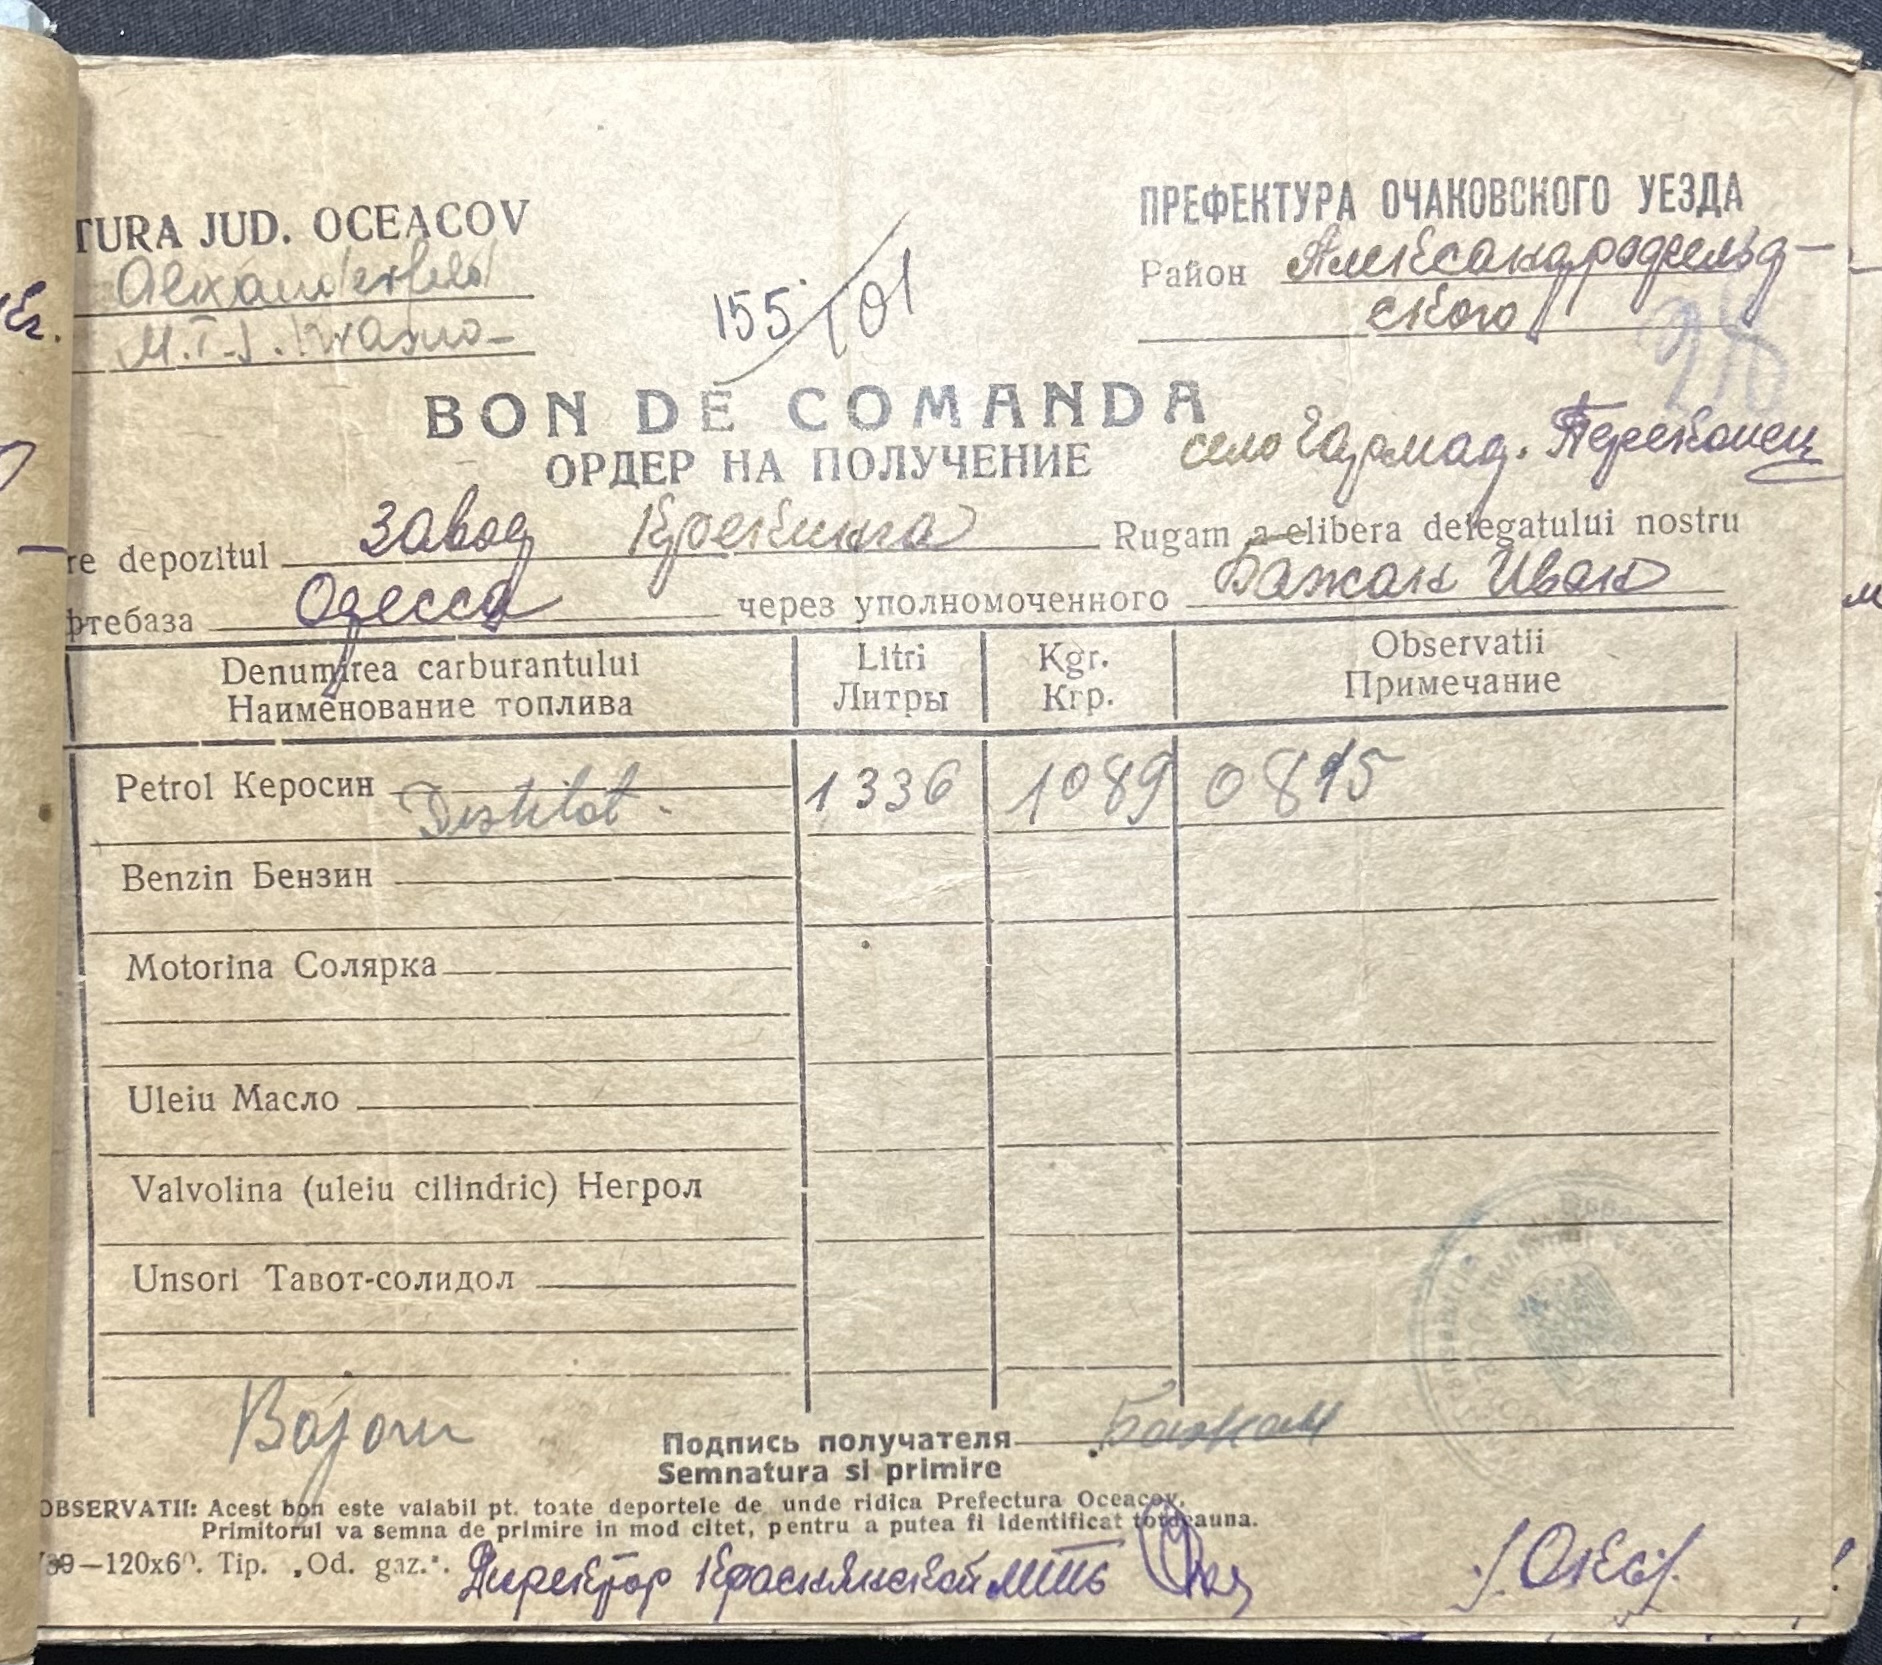 TURA JUD. OCEACOV
ПРЕФЕКТУРА ОЧАКОВСКОГО УЕЗДА
Alexanderfeld
Район Александрофельд-
M.T.S. Krasno-
ского
155/101
BON DE COMANDA
ОРДЕР НА ПОЛУЧЕНИЕ
село Гармад.
re depozitul завод Крекинга Rugam a elibera delegatului nostru
фтебаза Одесса через уполномоченного Бажан Иван
Denumirea carburantului Litri Kgr. Observatii
Наименование топлива Литры Кгр. Примечание
Petrol Керосин Distilat 1336 1089 0815
Benzin Бензин
Motorina Солярка
Uleiu Масло
Valvolina (uleiu cilindric) Негрол
Unsori Тавот-солидол
Bajan
Подпись получателя Бажан
Semnatura si primire
OBSERVATII: Acest bon este valabil pt. toate deportele de unde ridica Prefectura Oceacov.
Primitorul va semna de primire in mod citet, pentru a putea fi identificat totdeauna.
39—120x60. Tip. „Od. gaz.“.
Директор Краснянской мтс